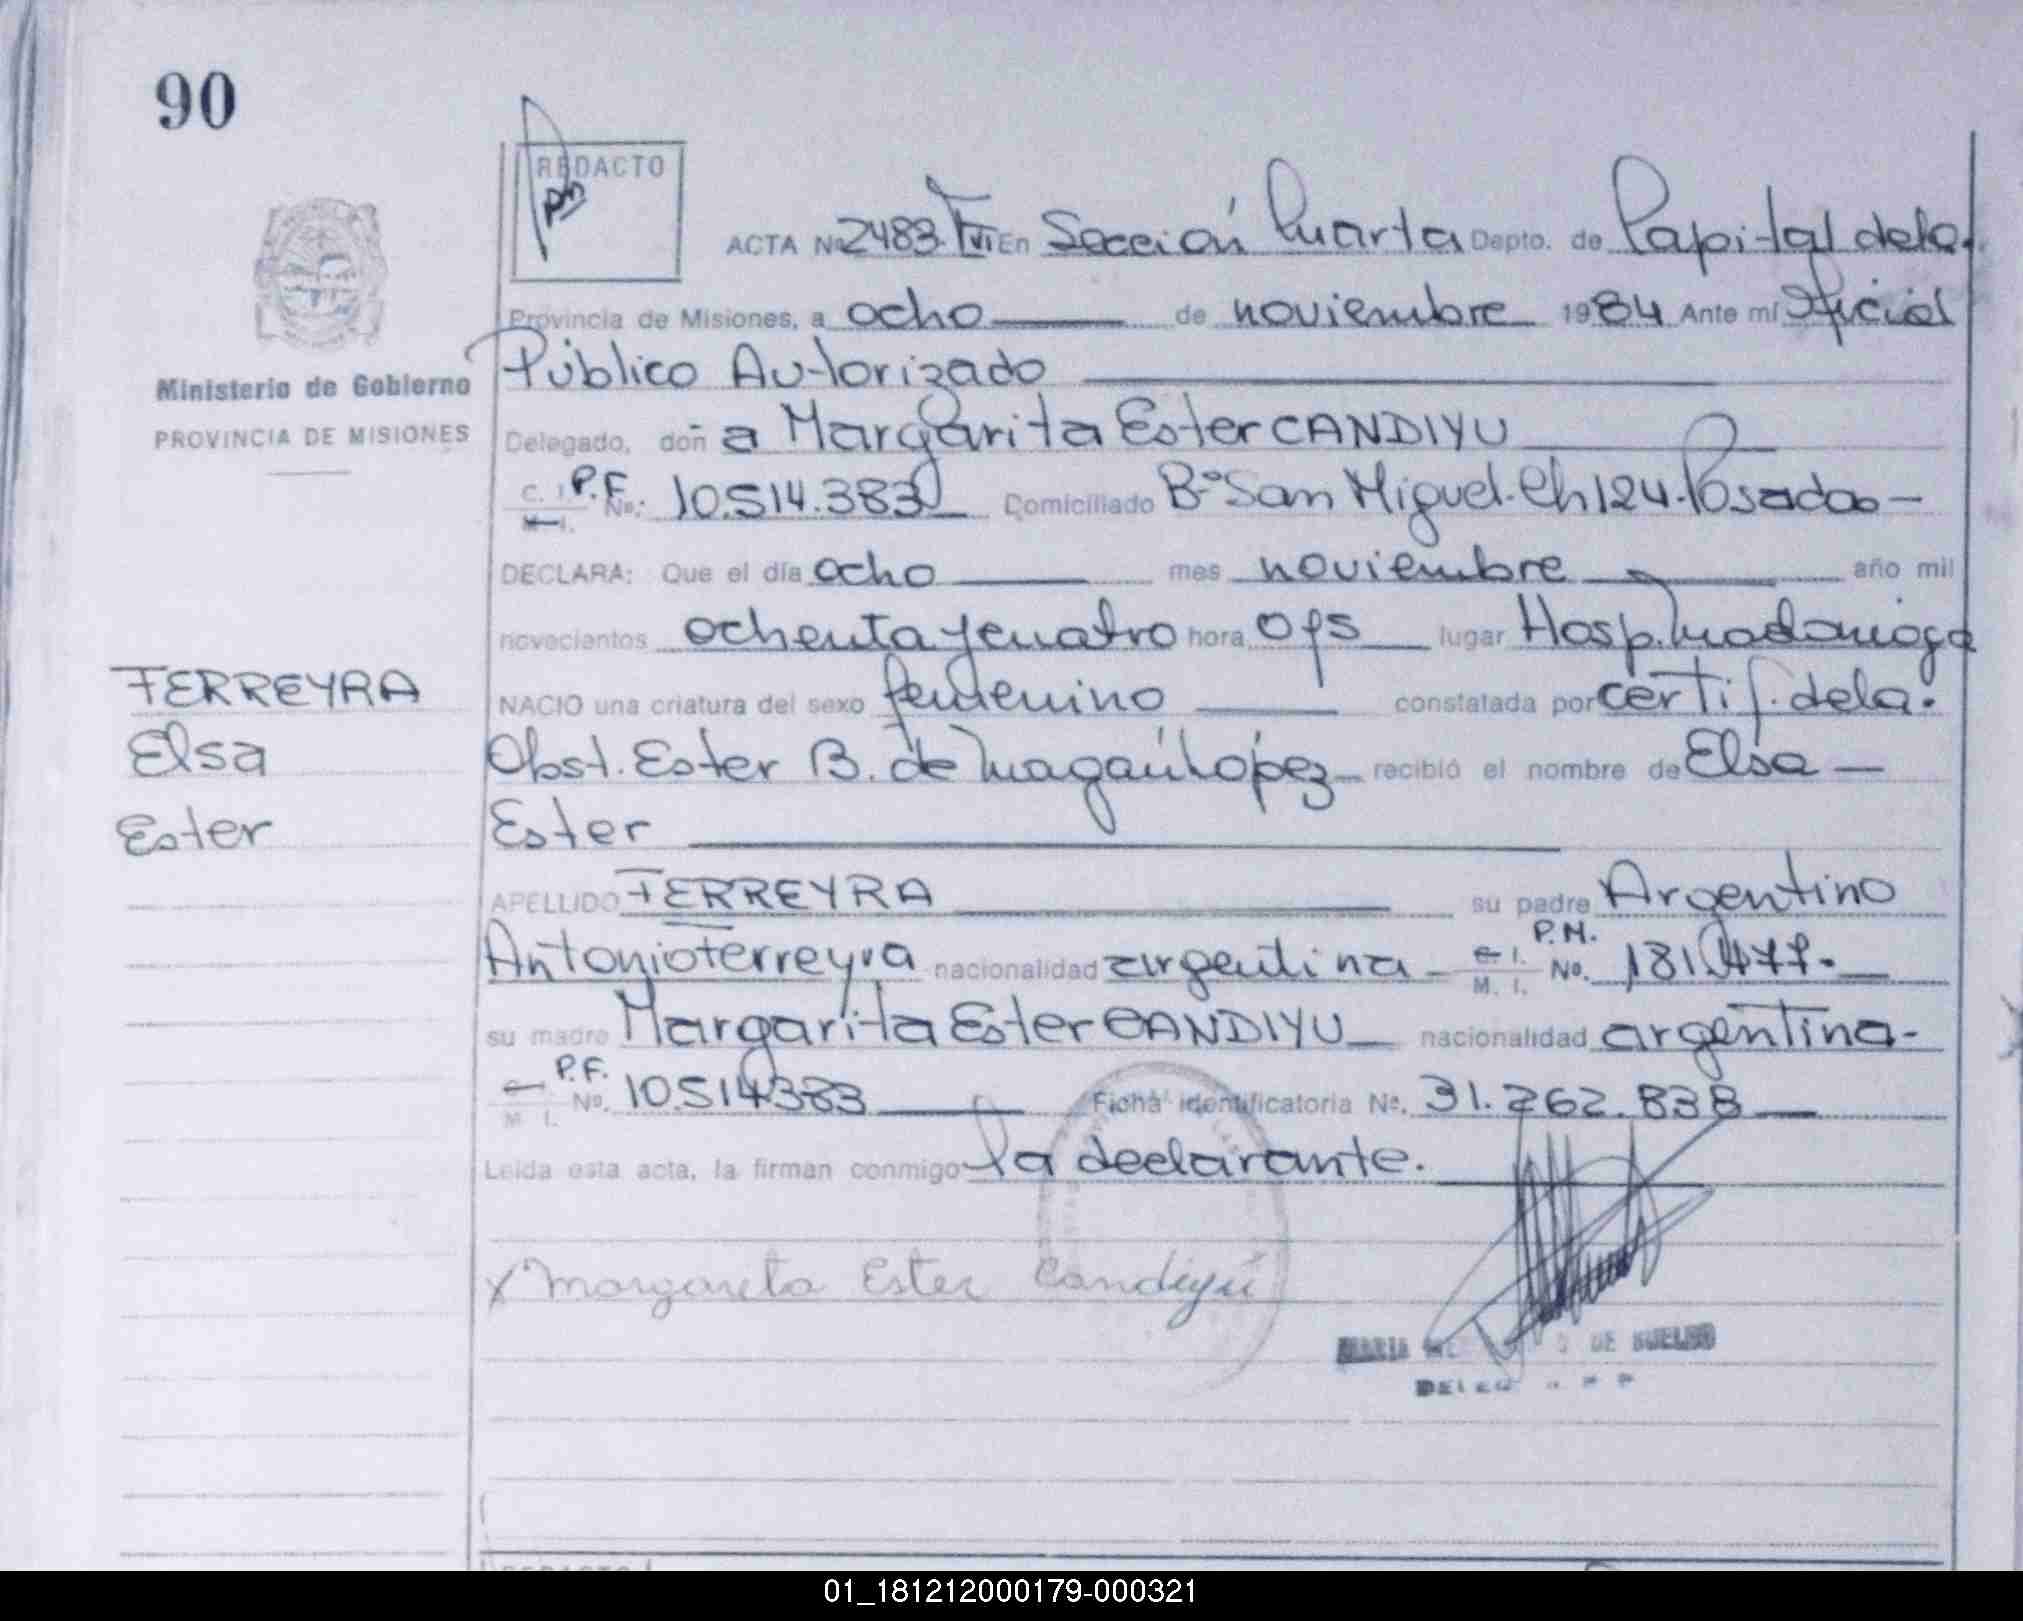 90
REDACTO
ACTA No 2483. T VI En Sección Cuarta Depto. de Capital de la
Provincia de Misiones, a ocho de noviembre 1984 Ante mí Oficial
Público Autorizado
Ministerio de Gobierno
PROVINCIA DE MISIONES
Delegado, don a Margarita Ester CANDIYU
C. I. P.F. No.: 10.514.383 Domiciliado B° San Miguel. Ch 124. Posadas -
M. I.
DECLARA: Que el día ocho mes noviembre año mil
novecientos ochenta y cuatro hora lugar Hosp. Madariaga
FERREYRA
NACIO una criatura del sexo femenino constatada por certif. de la
Elsa
Obst. Ester B. de López recibió el nombre de Elsa -
Ester
Ester
APELLIDO FERREYRA su padre Argentino
Antonio Ferreyra nacionalidad argentina - C. I. P.M. No.
M. I.
su madre Margarita Ester CANDIYU nacionalidad argentina -
P.F. No. 10.514.383 Ficha identificatoria No. 31.262.838
M I.
Leida esta acta, la firman conmigo la declarante.
x Margareta Ester Candiyú
MARIA DE
01_181212000179-000321